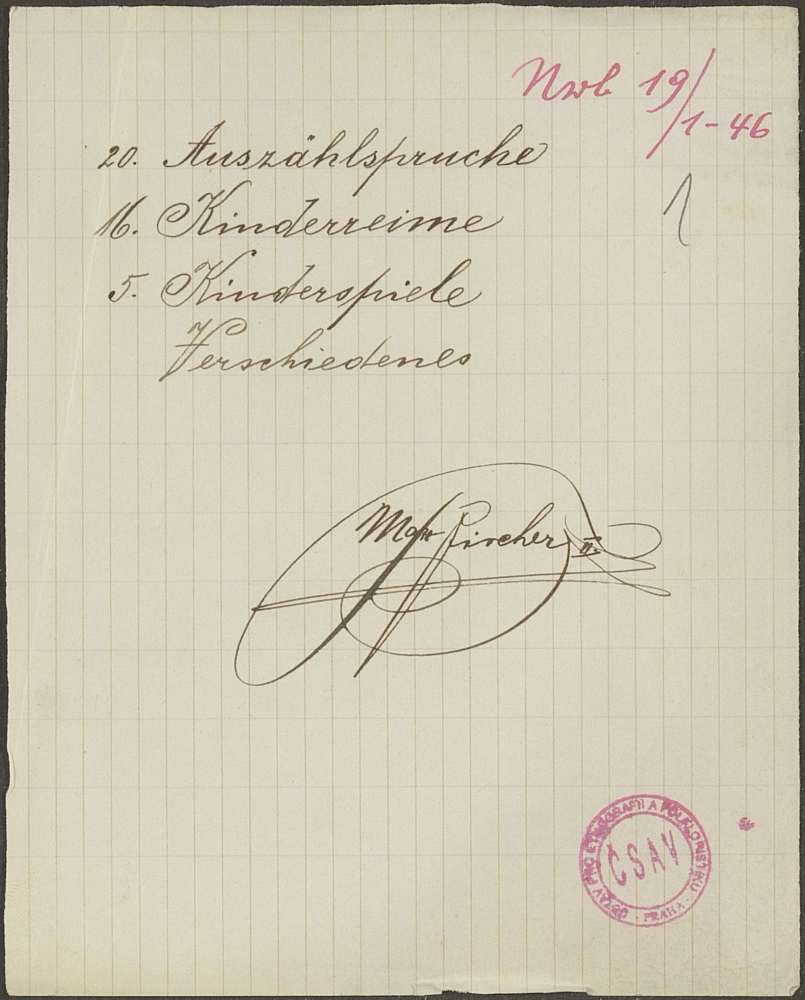 Nwb 19/1-46
1
20. Auszählspruche
16. Kinderreime
5. Kinderspiele
Verschiedenes
Pircher II.
ÚSTAV PRO ETNOGRAFII A FOLKLORISTIKU
ČSAV
· PRAHA ·